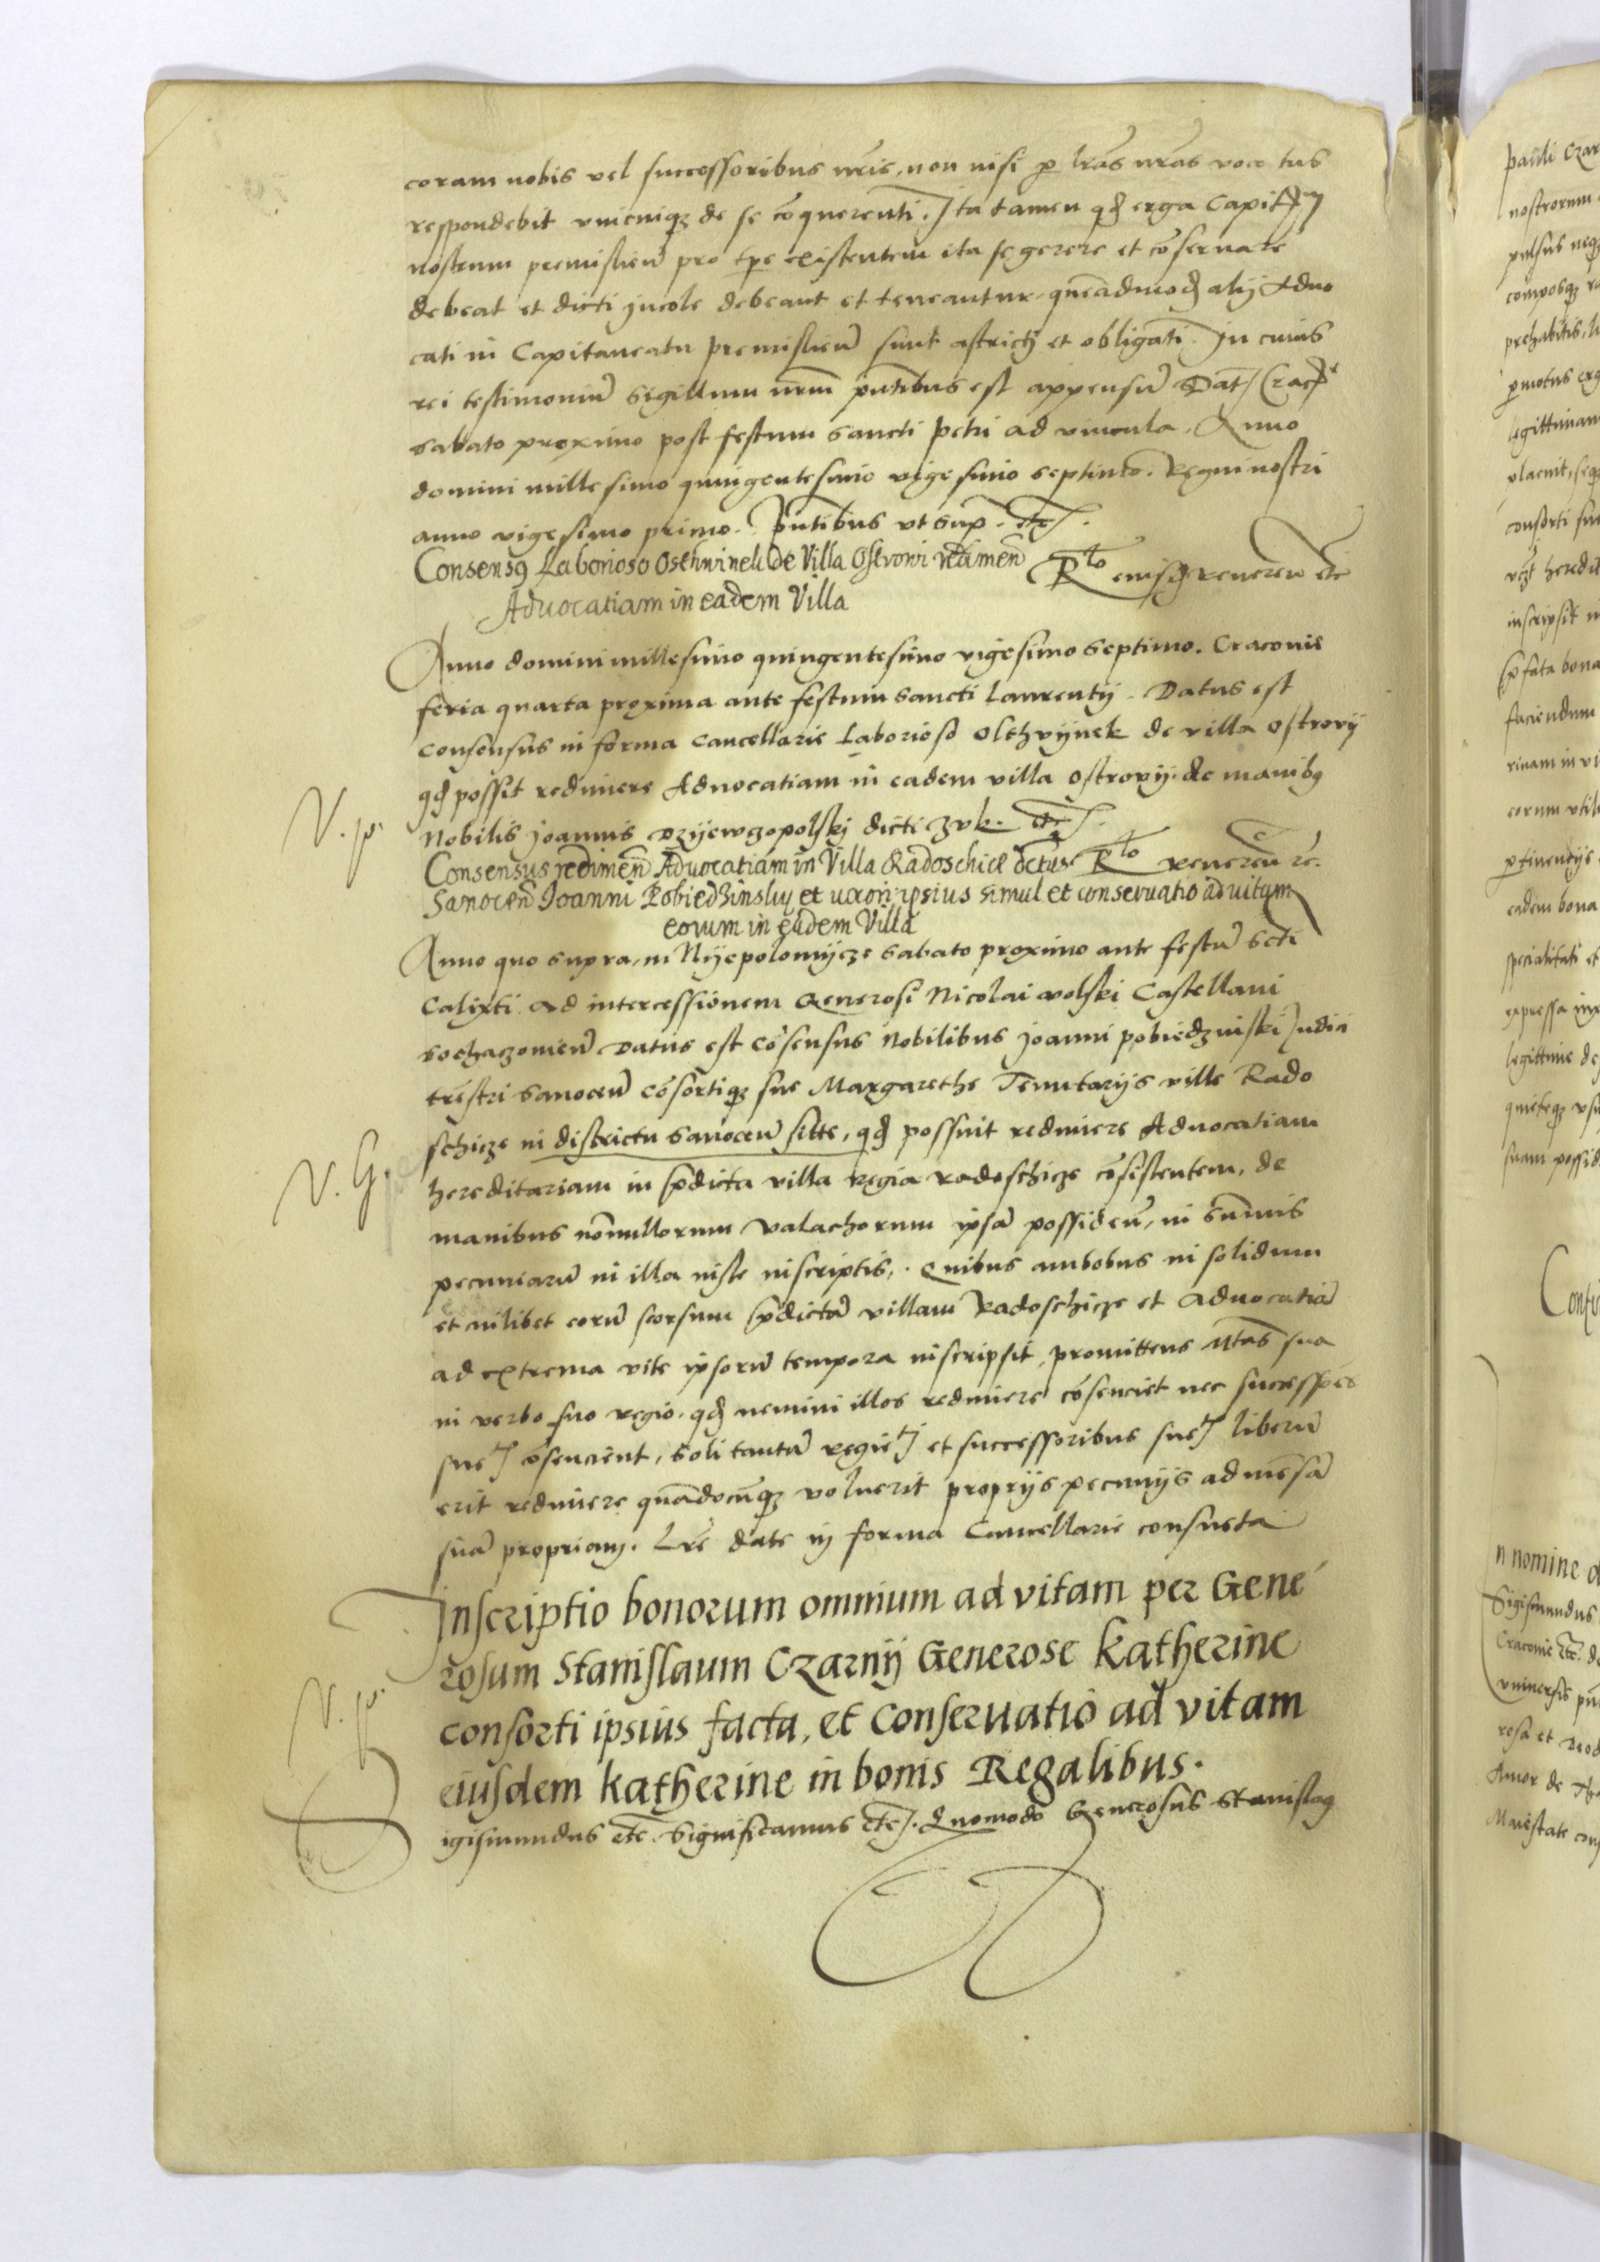 coram nobis vel successoribus nris, non nisi p lras nras voca tus
respondebit unicuiqz de se cōquerenti. Ita tamen qd erga Capit
nostrum premislien pro tpe existentem ita se gerere et cōservare
debeat et dicti jncole debeant et teneantur, quēadmod alij Advo
cati in Capitaneatu premislien sunt astricti et obligati. In cuius
rei testimoniū sigillum nrm pntibus est appensū Dat Crac
sabato proximo post festum sancti petri ad vincula. Anno
domini millesimo quingentesimo vigesimo septimo. Regni nostri
anno vigesimo primo. pntibus ut sup. etc.
Consensq Laborioso Osthwinek de Villa Ostrovi redimen
Rlo eiusd reveren etc
Advocatiam in eadem Villa
Anno domini millesimo quingentesimo vigesimo septimo. Cracovie
feria quarta proxima ante festum sancti laurentij. Datus est
consensus in forma cancellarie Laborioso Olthvijnek de villa ostrovij
qd possit redimere Advocatiam in eadem villa ostrovij de manibq
V. p.
Nobilis joannis Dzijewgopolskj dicti zuk. etc.
Consensus redimen Advocatiam in Villa Radoschicze detus Rlo reveren re.
Sanocen Joanni Pobiedzinsky et uxori ipsius simul et conservatio ad vitam
eorum in eadem Villa
Anno quo supra, in Nijepolomijcze sabato proximo ante festū scti
Calixti. Ad intercessionem Generosi Nicolai volski Castellani
sochaczovien Datus est cōsensus Nobilibus joanni pobiedzinski Judici
trestri sanocen cōsortiqz sue Margarethe Tenutarijs ville Rado
schicze in districtu sanocen sitte, qd possint redimere Advocatiam
V. G.
hereditariam in pdicta villa regia radoschicze cōsistentem, de
manibus nōnullorum valachorum ipsā possiden, in sūmis
pecuniarū in illa iuste inscriptis,. Quibus ambobus in solidum
et cuilibet eorū seorsum pdictā villam Radoschicze et Advocatiā
ad extrema vite ipsorū tempora inscripsit, promittens Mtas sua
in verbo suo regio. qd nemini illos redimere cōsenciet nec successores
sue cōsencient, soli tantū regie et successoribus sue liberū
erit redimere quādocūqz voluerit proprijs pecunijs ad mēsā
suā propriam. Lre date in forma Cancellarie consueta
Inscriptio bonorum omnium ad vitam per Gene
rosum Stanislaum Czarnij Generose Katherine
V. p.
consorti ipsius facta, et Conservatio ad vitam
eiusdem Katherine in bonis Regalibus.
Sigismundus etc. Significamus etc. Quomodo Generosus Stanislaq